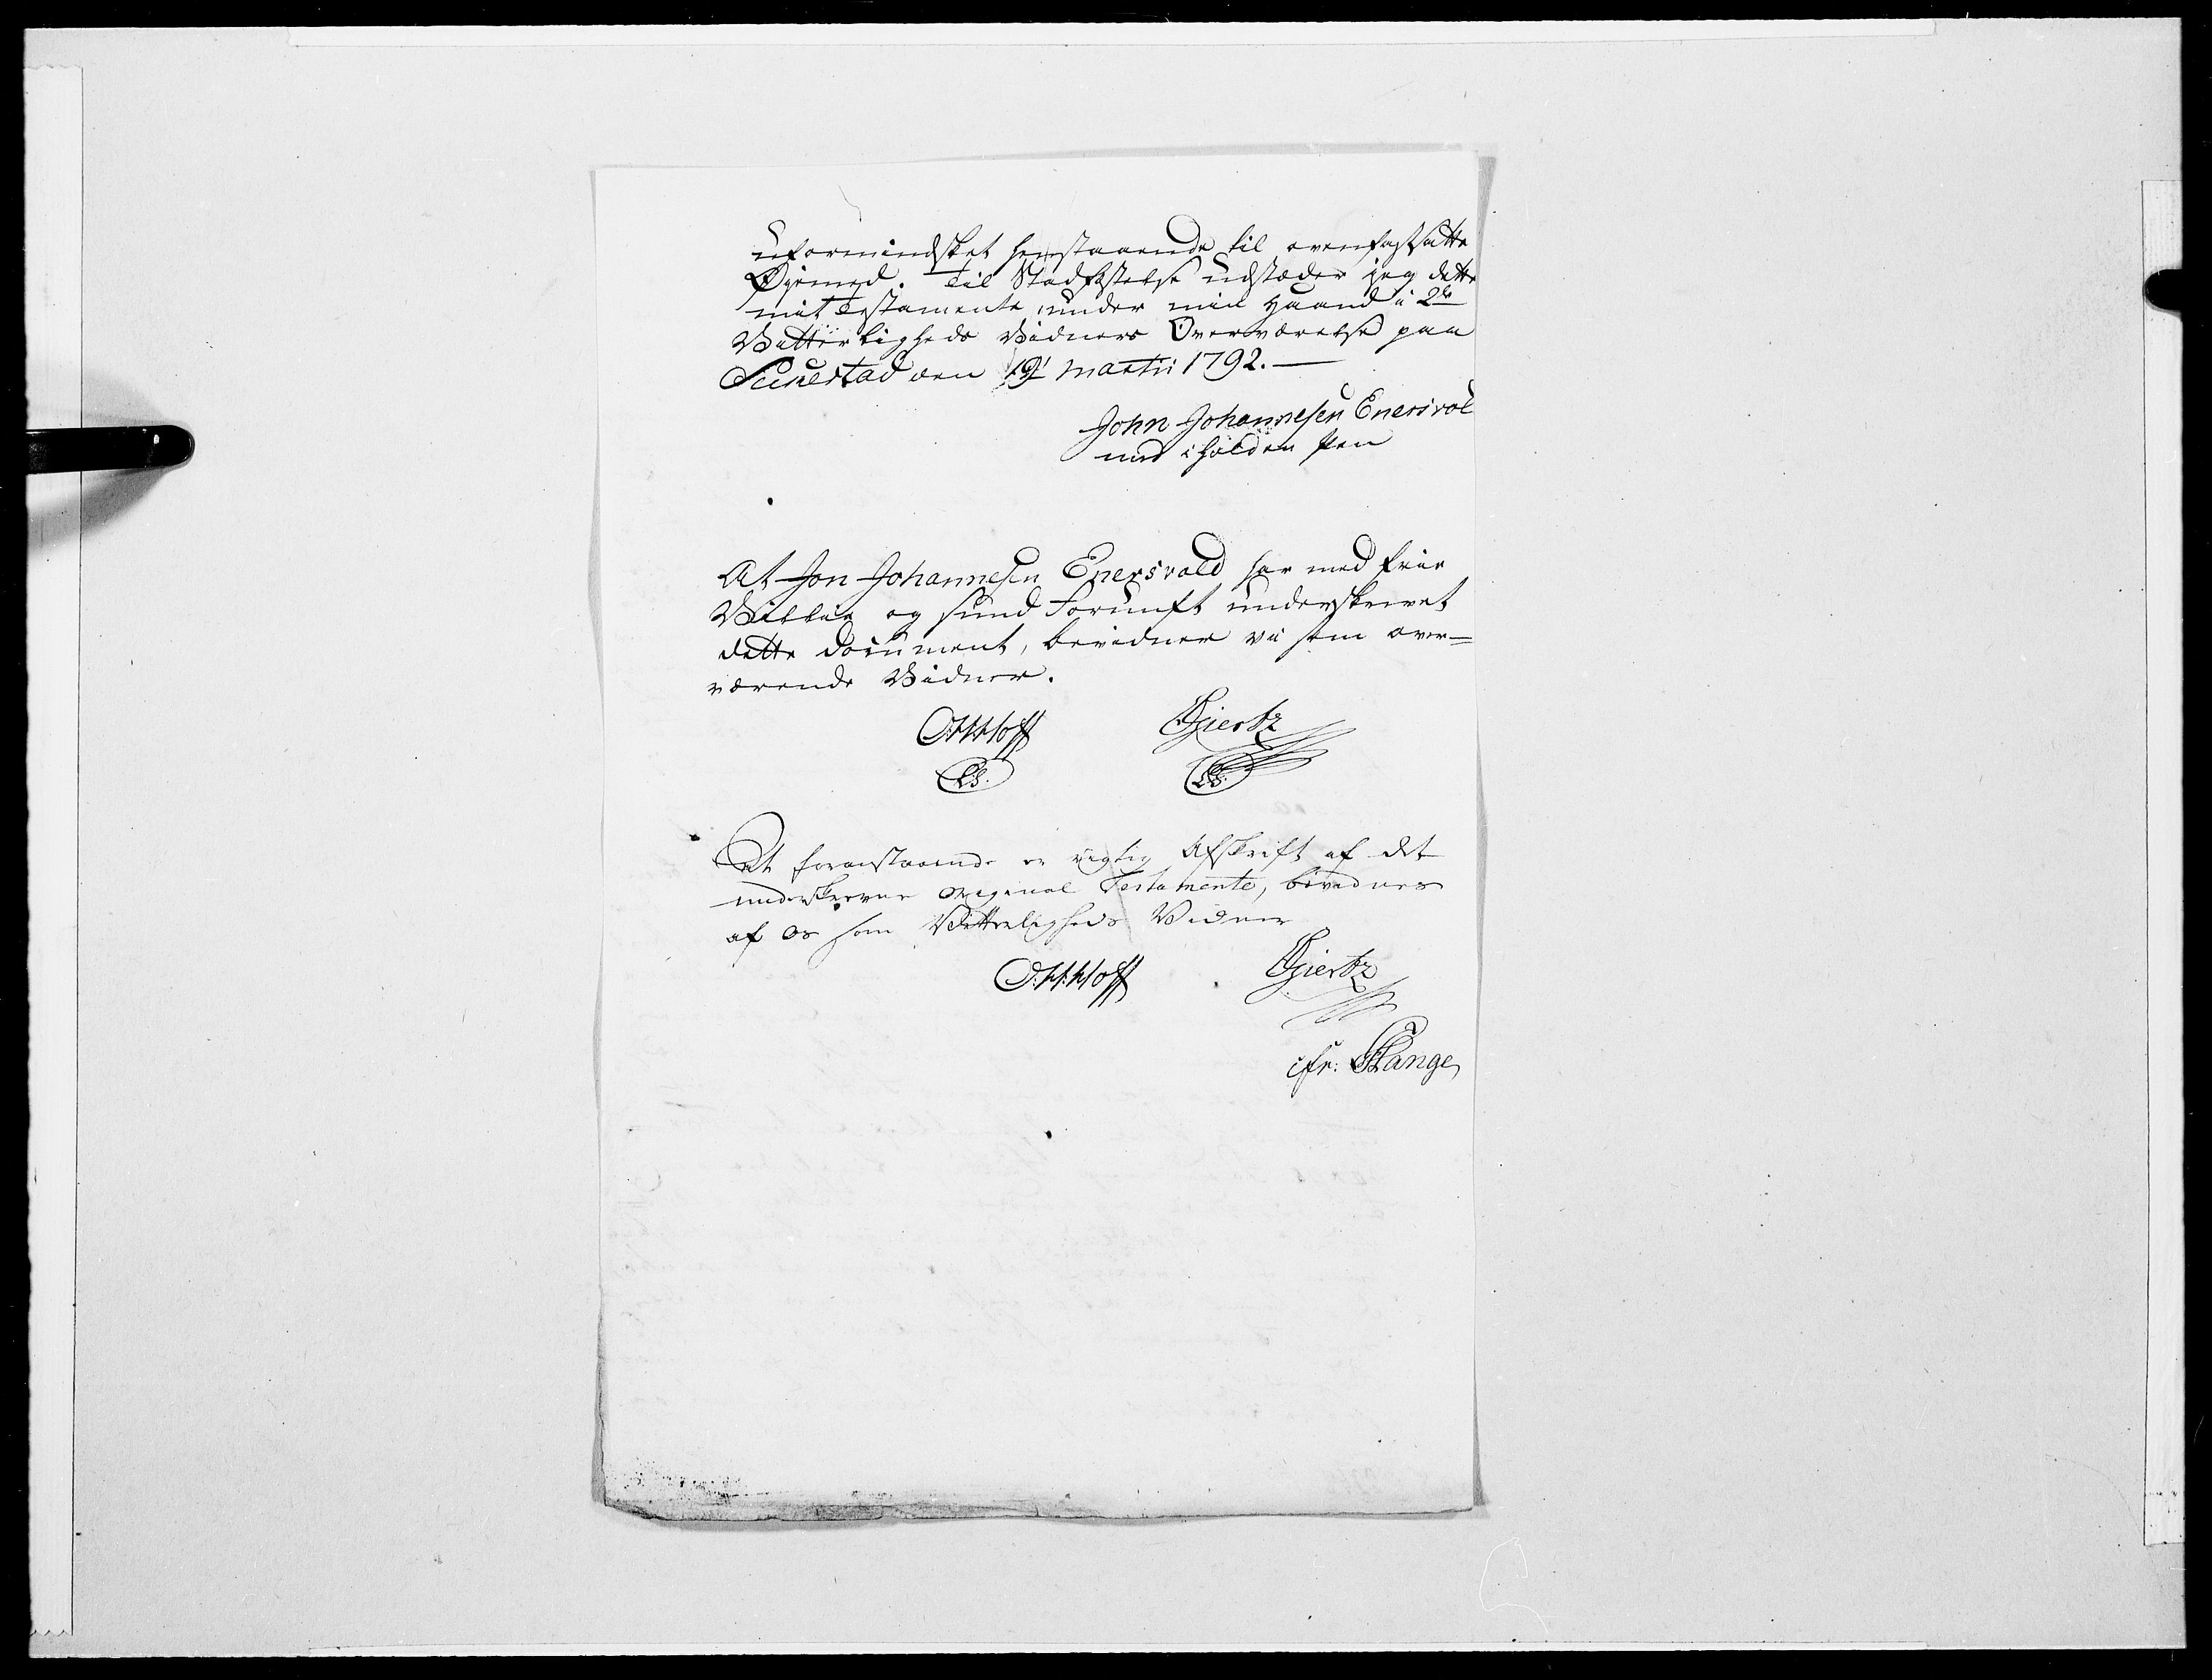 uformindsket henstaaende til ovenfastsatte
Øjemed. Til Stadfæstelse udstæder jeg dette
mit Testamente under min Haand i 2de
Vitterligheds Vidners Overværelse paa
den 19' Martii 1792. —
John Johannesen Enersvol
med iholden Pen
At Jon Johannesen Enersvold har med frie
Villie og sund Fornuft underskrevet
dette Document, bevidner vi som over=
værende Vidner.
OHHoff Giertz
LS. LS.
At foranstaaende er rigtig Afskrift af det
underskrevne original Testamente, bevidnes
af os som Vitterligheds Vidner
O.H.Hoff Giertz
cfr: Stange